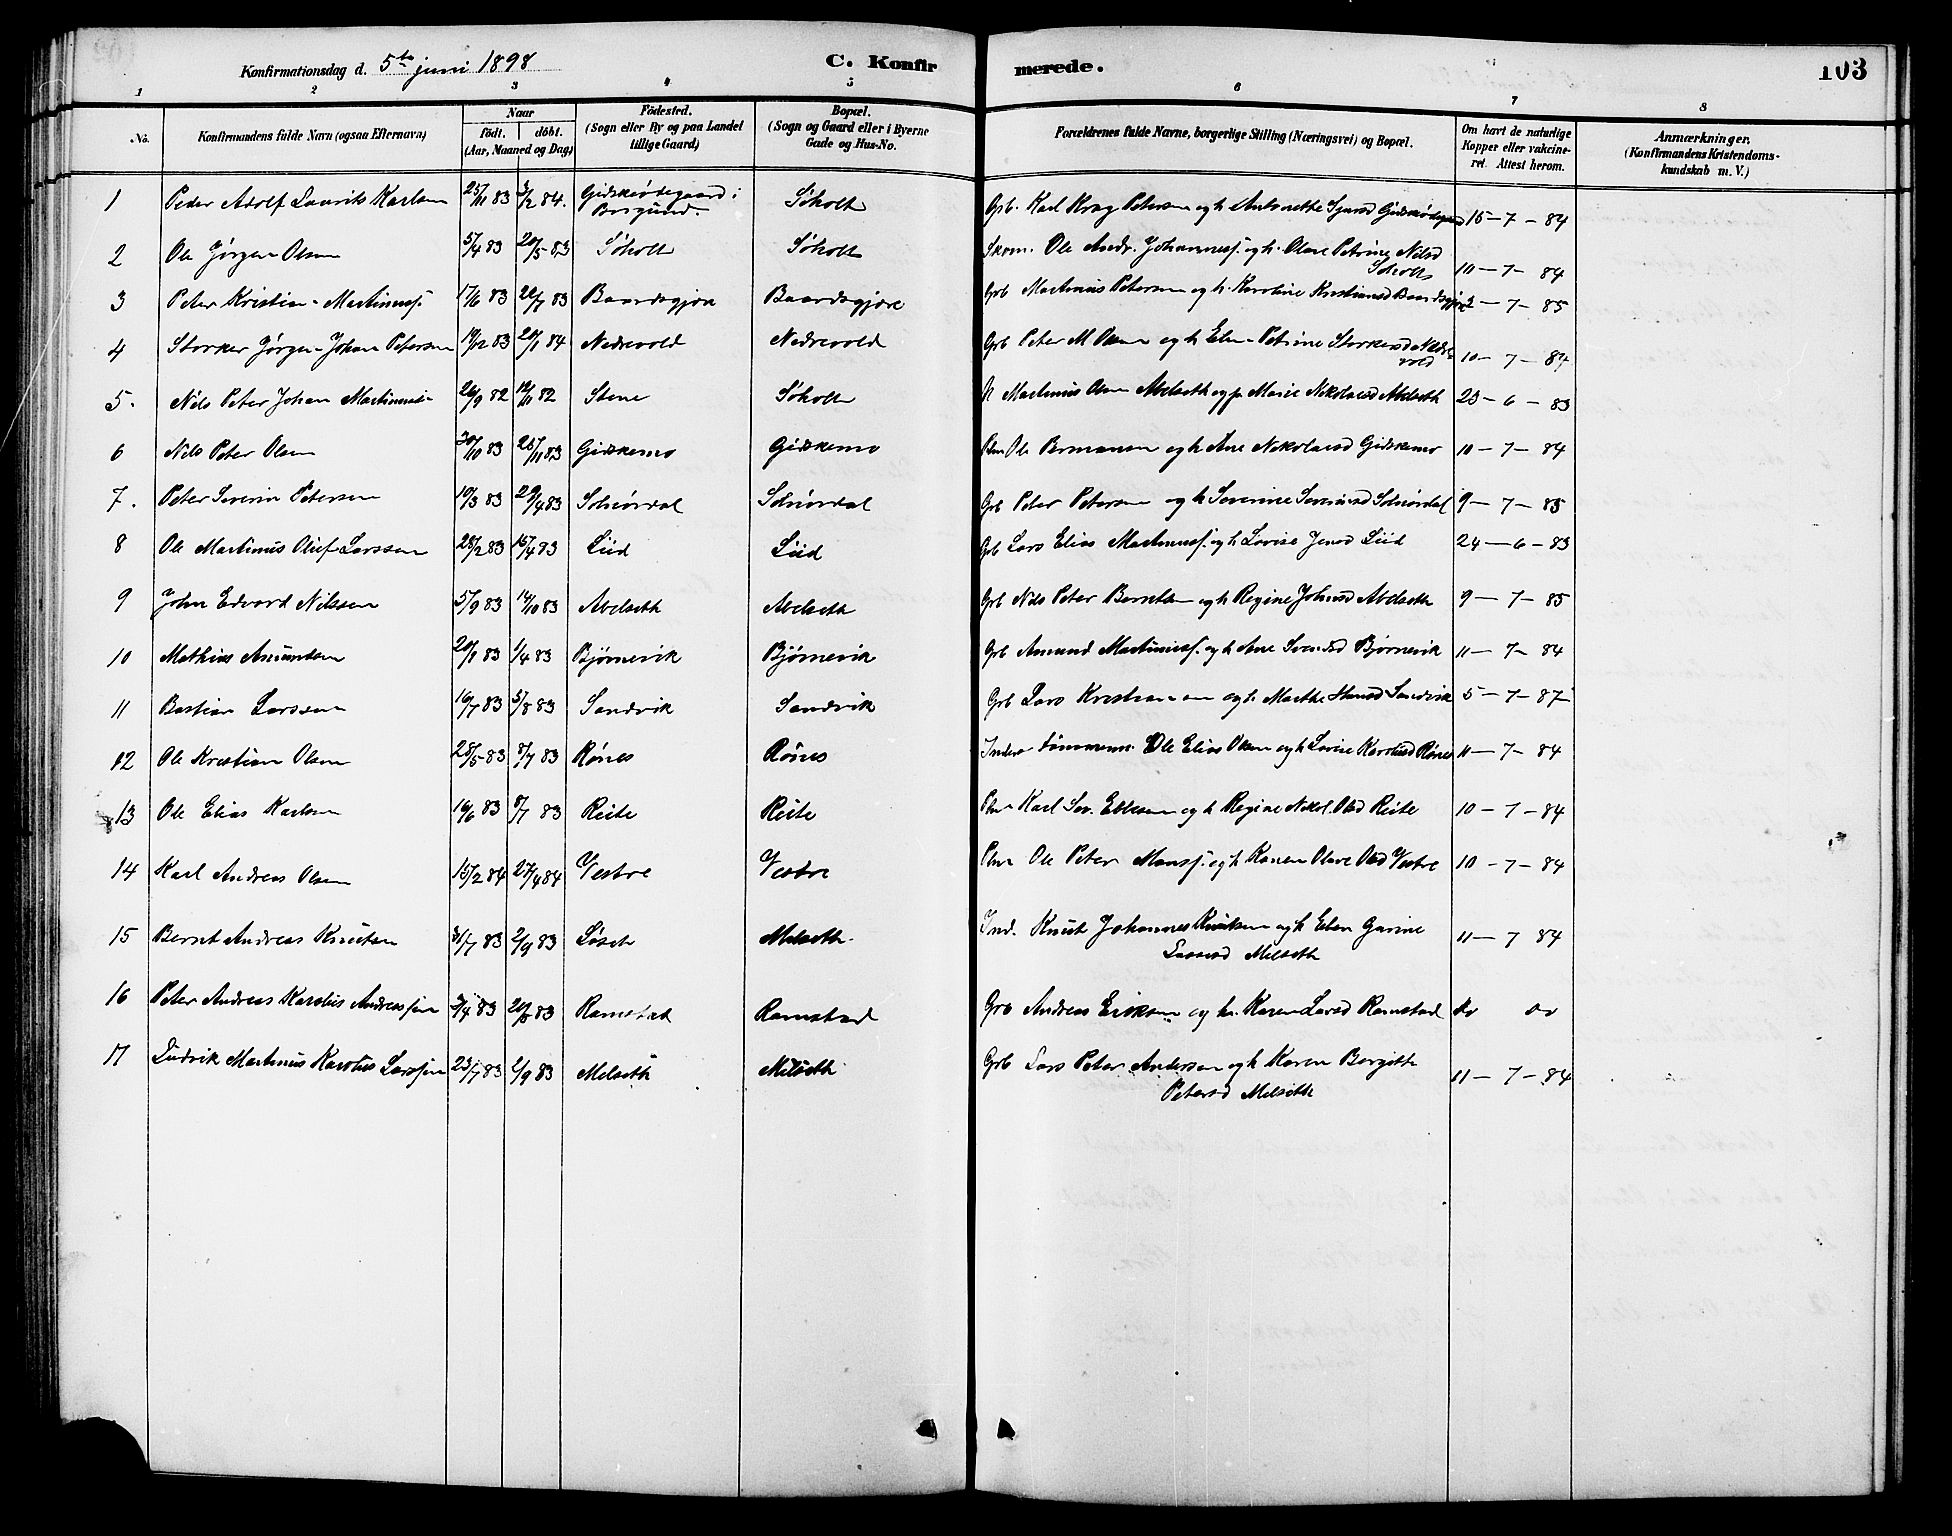 Konfirmationsdag d. 5te juni 1898
C. Konfir merede.
103
1 2 3 4 5 6 7 8
No.
Konfirmandens fulde Navn (ogsaa Efternavn)
Naar
födt. döbt.
(Aar, Maaned og Dag)
Födested.
(Sogn eller By og paa Landet
tillige Gaard)
Bopæl.
(Sogn og Gaard eller i Byerne
Gade og Hus-No.
Forældrenes fulde Navne, borgerlige Stilling (Næringsvei) og Bopæl.
Om havt de naturlige
Kopper eller vakcine-
ret. Attest herom.
Anmærkninger.
(Konfirmandens Kristendoms-
kundskab m. V.)
1 Peder Adolf Laurits Karlsen 25/11 83 3/2 84. Gidskeødegaard i Borgund. Søholt Grb. Karl Krag Petersen og h Antonette Sjursd Gidskeødegaard 15 - 7 - 84
2 Ole Jørgen Olsen 5/4 83 20/5 83 Søholt Søholt Skom. Ole Andr. Johanness. og h. Olave Petrine Nilsd
Søholt 10 - 7 - 84
3 Peter Kristian Martinuss. 17/6 83 22/7 83 Baardsgjøre Baardsgjøre Grb Martinus Petersen og h. Karoline Kristiansd Baardsgjøre 2 - 7 - 85
4 Storker Jørgen Johan Petersen 19/12 83 20/1 84 Nedrevold Nedrevold Grb Peter M Olsen og h Elen Petrine Storkersd Nedre
vold 10 - 7 - 84
5. Nils Peter Johan Martinus 26/9 82 12/11 82 Stene Søholt Martinus Olsen Abelseth og p. Marie Nikolaisd Abelseth 23 - 6 - 83
6 Nils Peter Olsen 30/10 83 25/11 83 Gidskemo Gidskemo Ole Bermansen og h Ane Nikolaisd Gidskemo 10 - 7 - 84
7. Peter Severin Petersen 10/3 83 29/4 83 Solnørdal Solnørdal Grb Peter Petersen og h Severine Severinsd Solnørdal 9 - 7 - 85
8 Ole Martinus Oluf Larssen 28/2 83 15/4 83 Liid Liid Grb Lars Elias Martinuss. og h Lovise Jensd Liid 24 - 6 - 83
9 John Edvard Nilssen 5/9 83 14/10 83 Abelseth Abelseth Grb Nils Peter Berntsen og h Regine Johnsd Abelseth 9 - 7 - 85
10 Mathias Amundsen 20/1 83 1/4 83 Bjørnevik Bjørnevik Grb Amund Martinuss. og h Ane Svensd Bjørnevik 11 - 7 - 84
11 Bastian Larssen 16/7 83 5/8 83 Sandvik Sandvik Grb Lars Kristiansen og h. Marthe Hansd Sandvik 5 - 7 - 87
12 Ole Kristian Olsen 28/5 83 8/7 83 Rønes Rønes Ole Elias Olsen og h Lovise Karolusd Rønes 11 - 7 - 84
13 Ole Elias Karlsen 16/6 83 8/7 83 Reite Reite Karl Sev. Ellefsen og h Regine Nikol. Olsd Reite 10 - 7 - 84
14 Karl Andreas Olsen 15/2 84 27/4 84 Vestre Vestre Ole Peter Monss. og h. Karen Olave Olsd Vestre 10 - 7 - 84
15 Bernt Andreas Knutsen 31/7 83 2/9 83 Løset Melseth Ind. Knut Johannes Knutsen og h Elen Gurine
Larsd Melseth 11 - 7 84
16 Peter Andreas Karolus Andreassen 3/4 83 20/5 83 Ramstad Ramstad Grb Andreas Eriksen og h. Karen Larsd Ramstad do do
17 Ludvik Martinus Karolus Larssen 23/7 83 2/9 83 Melseth Melseth Grb Lars Peter Andersen og h Karen Bergitte
Petersd Melseth 11 - 7 - 84